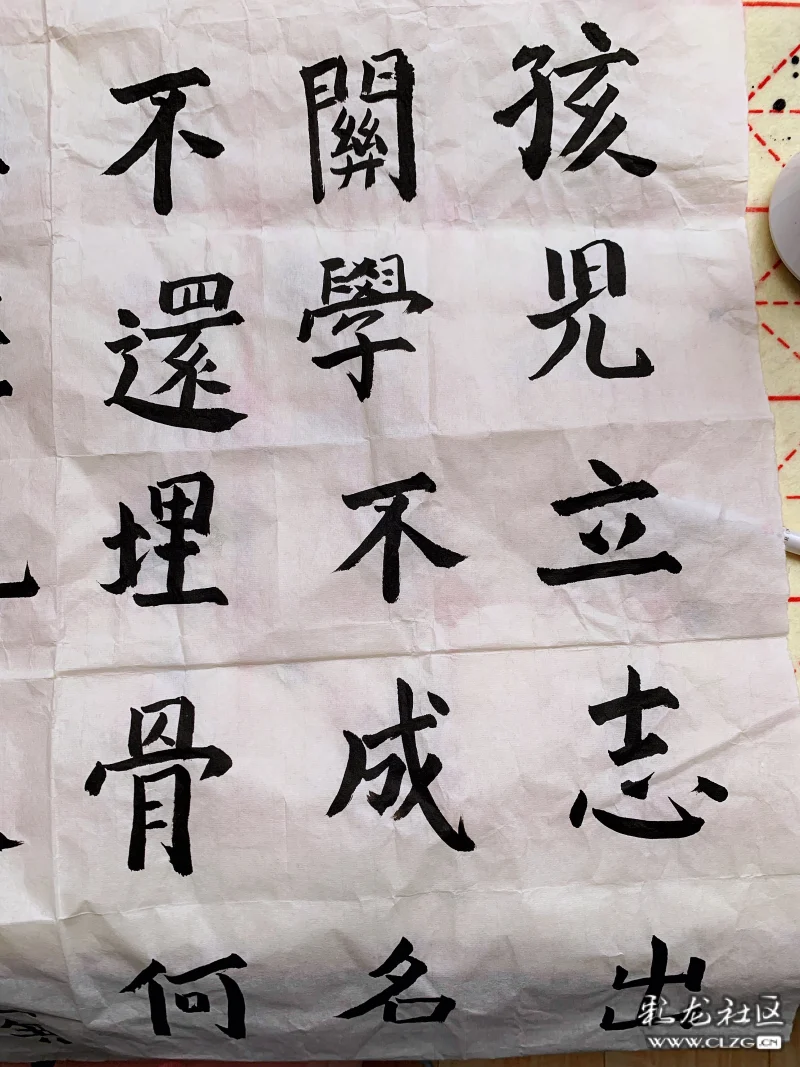 孩兒立志出
關學不成名
不還埋骨何
彩龙社区
WWW.CLZG.CN